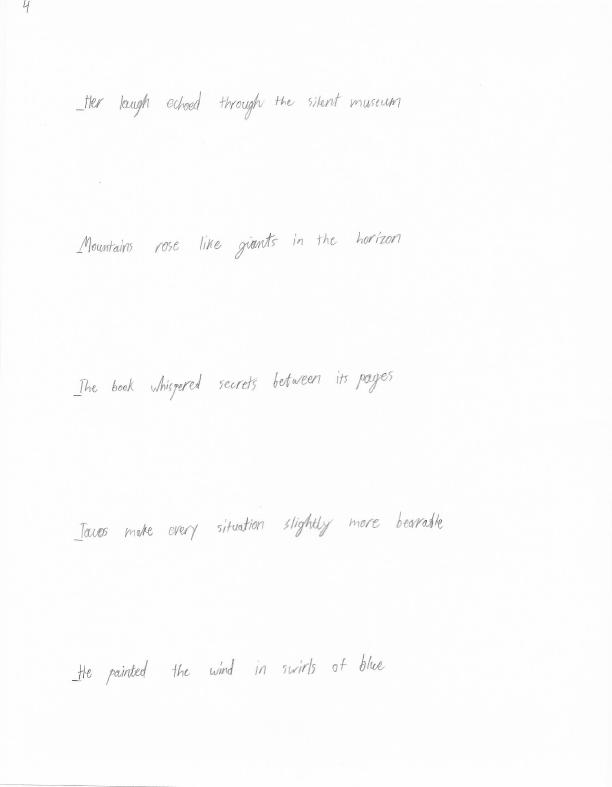 4
Her laugh echoed through the silent museum
Mountains rose like giants in the horizon
The book whispered secrets between its pages
Tacos make every situation slightly more bearable
He painted the wind in swirls of blue